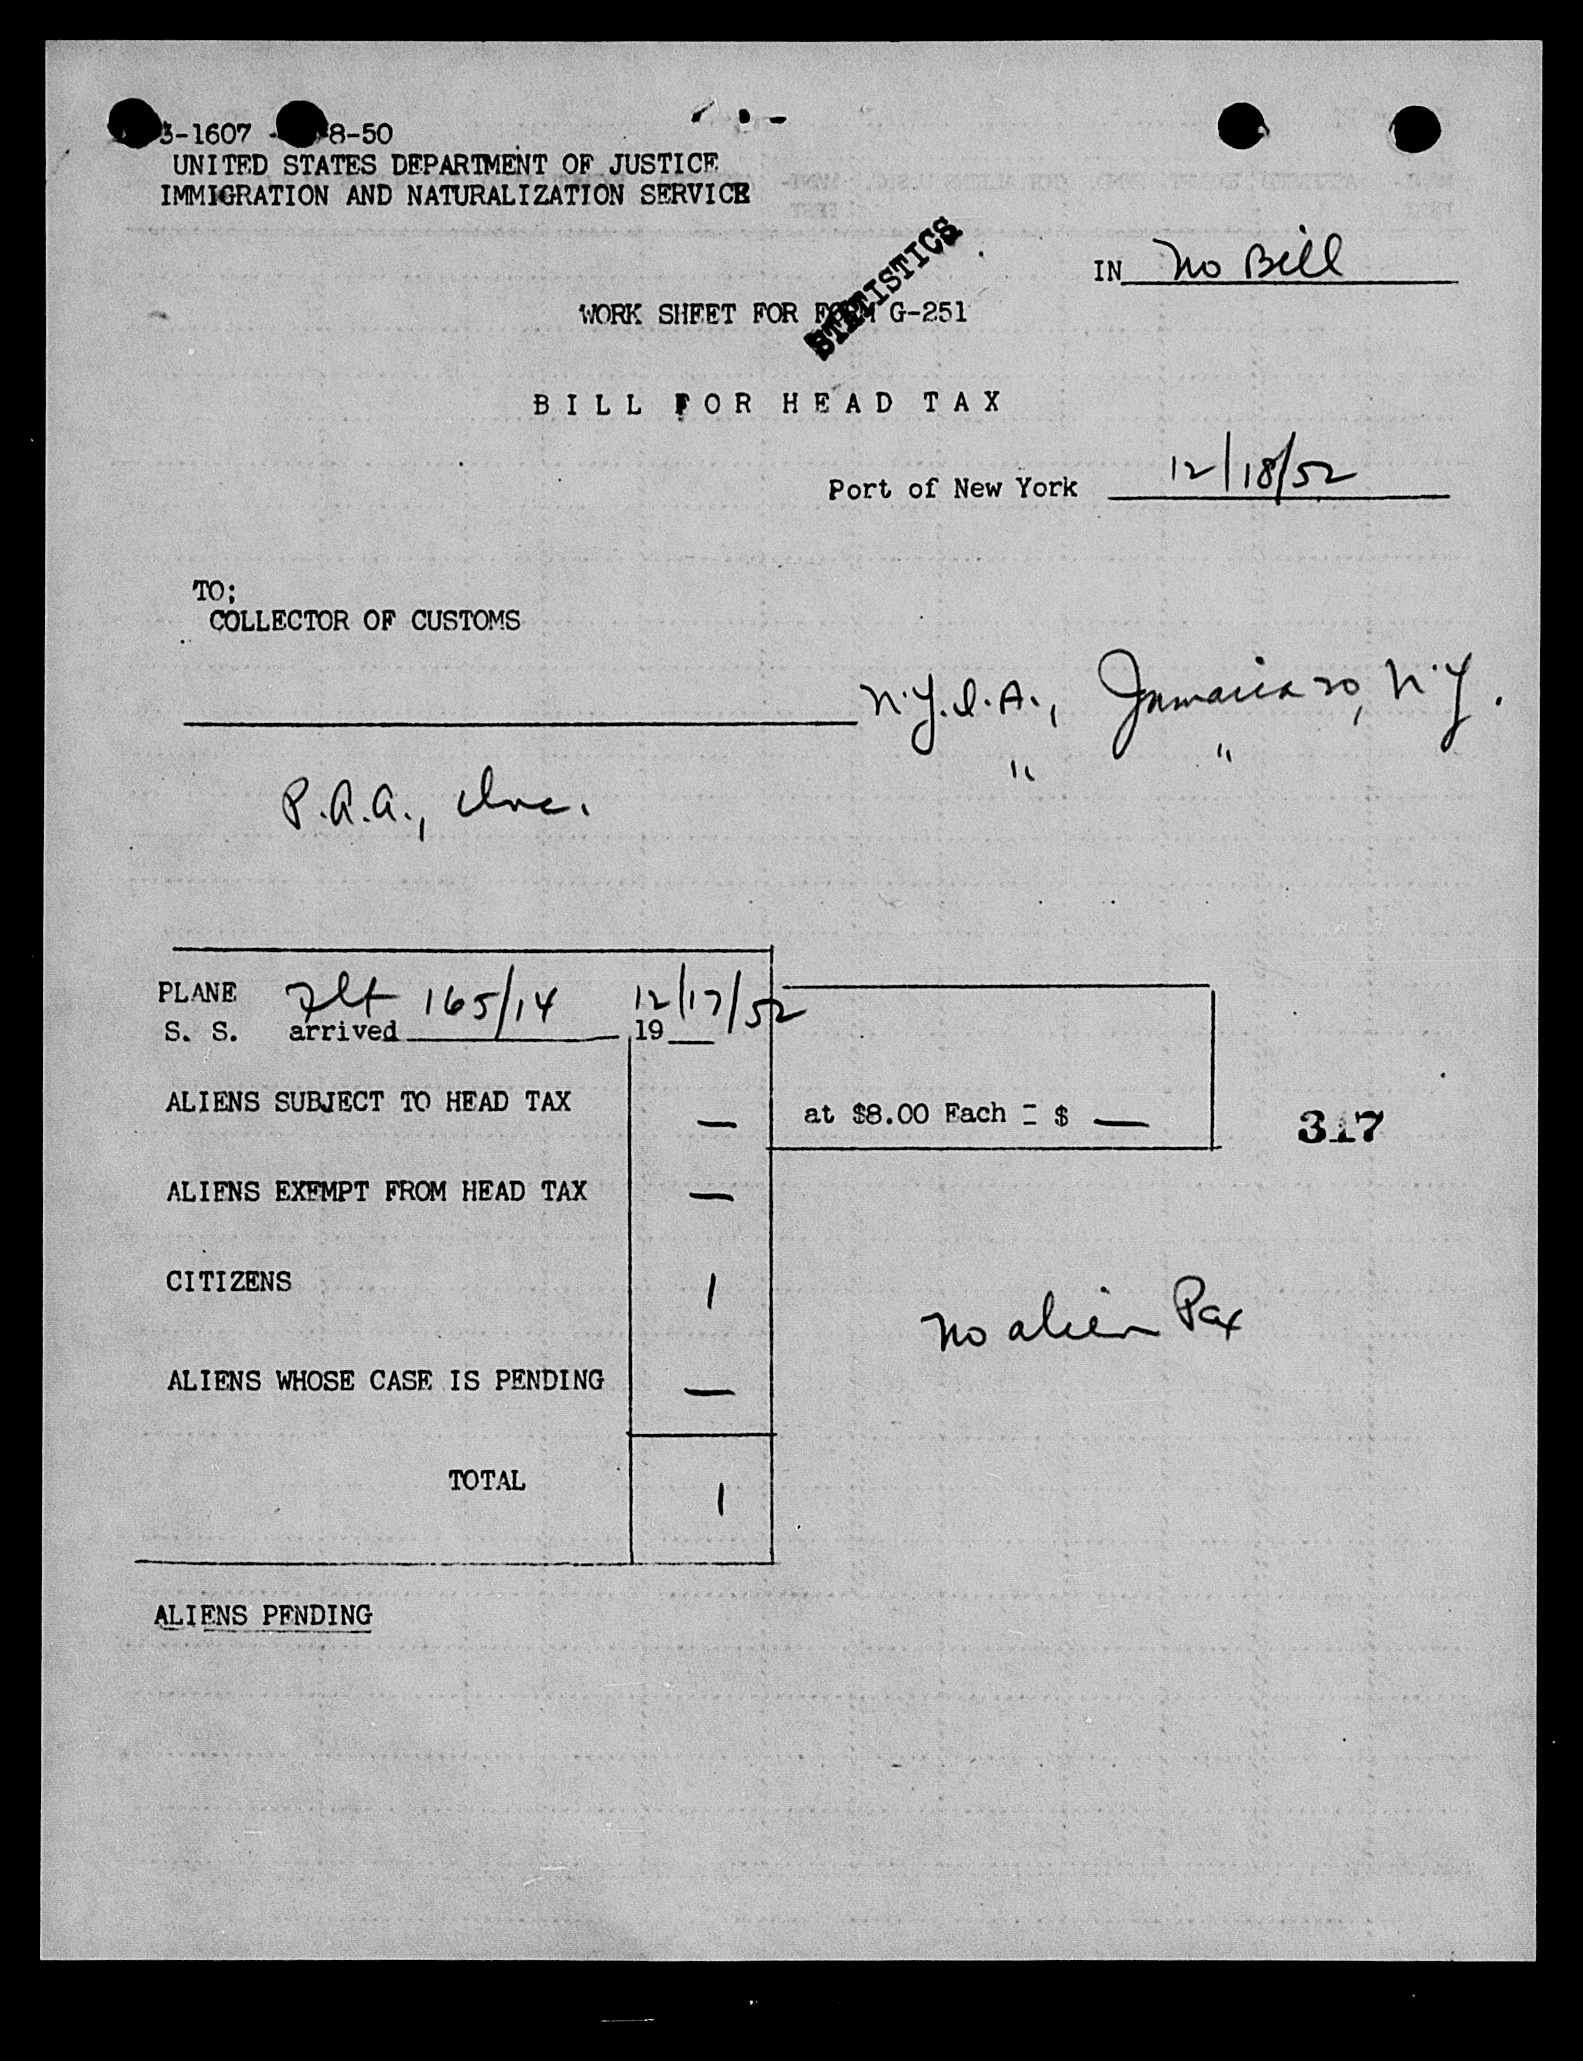 3-1607 - 8-50
UNITED STATES DEPARTMENT OF JUSTICE
IMMIGRATION AND NATURALIZATION SERVICE
STATISTICS
IN No Bill
WORK SHEET FOR FORM G-251
BILL FOR HEAD TAX
Port of New York 12/18/52
TO;
COLLECTOR OF CUSTOMS
N.Y.I.A., Jamaica 30, N.Y.
" "
P.A.A., Inc.
PLANE Flt 165/14 12/17/52
S. S. arrived 19
ALIENS SUBJECT TO HEAD TAX — at $8.00 Each = $ —
317
ALIENS EXEMPT FROM HEAD TAX —
CITIZENS 1
No alien Pax
ALIENS WHOSE CASE IS PENDING —
TOTAL 1
ALIENS PENDING